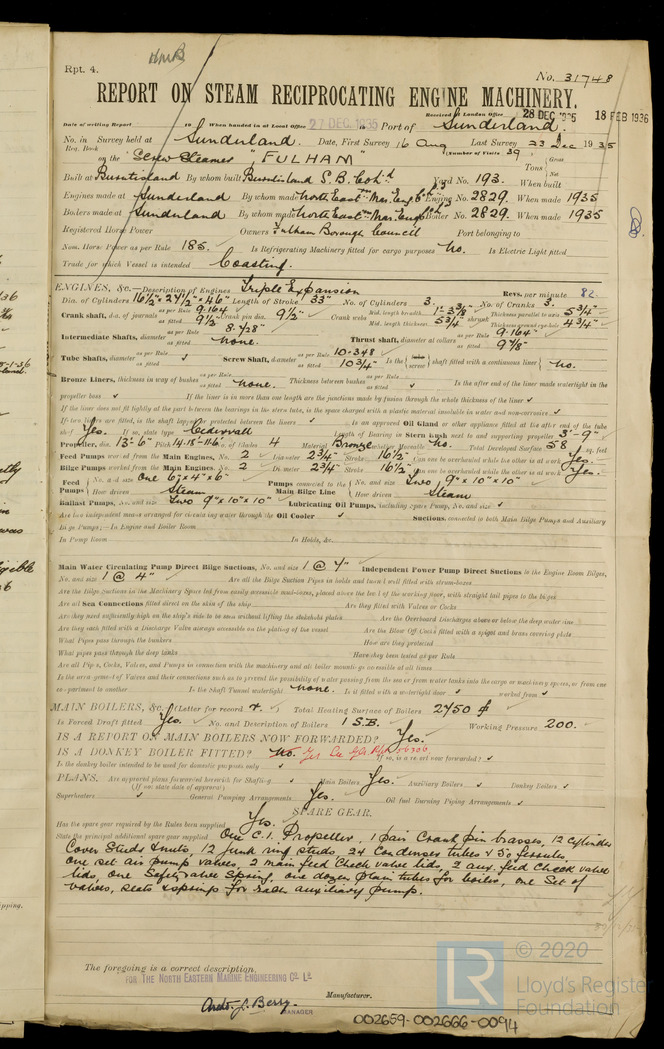 Rpt. 4.
No. 31748
REPORT ON STEAM RECIPROCATING ENGINE MACHINERY.
Received at London Office 28 DEC 1935 18 FEB 1936
Date of writing Report 19 When handed in at Local Office 27 DEC. 1935 Port of Sunderland.
No. in Reg. Book Survey held at Sunderland. Date, First Survey 16 Aug Last Survey 23 Dec 1935
(Number of Visits 39
on the Screw Steamer FULHAM Tons Gross Net
Built at Burntisland By whom built Burntisland S. B. Co Ltd Yard No. 193. When built
Engines made at Sunderland By whom made North Eastern Mar. Eng Co Ltd Engine No. 2829. When made 1935
Boilers made at Sunderland By whom made North Eastern Mar. Eng Co Ltd Boiler No. 2829. When made 1935
Registered Horse Power Owners Fulham Borough Council Port belonging to
Nom. Horse Power as per Rule 185. Is Refrigerating Machinery fitted for cargo purposes No. Is Electric Light fitted
Trade for which Vessel is intended Coasting.
ENGINES, &c.—Description of Engines Triple Expansion Revs. per minute 82
Dia. of Cylinders 16½"-27½"-46" Length of Stroke 33" No. of Cylinders 3. No. of Cranks 3.
Crank shaft, dia. of journals as per Rule 9.164 as fitted 9½ Crank pin dia. 9½" Crank webs Mid. length breadth 1'-3⅜" Mid. length thickness 5¾" shrunk Thickness parallel to axis 5¾" Thickness around eye-hole 4¾"
Intermediate Shafts, diameter as per Rule 8.728" as fitted none. Thrust shaft, diameter at collars as per Rule 9.164" as fitted 9⅞"
Tube Shafts, diameter as per Rule as fitted ✓ Screw Shaft, diameter as per Rule 10.348 as fitted 10¾" Is the tube screw shaft fitted with a continuous liner No.
Bronze Liners, thickness in way of bushes as per Rule as fitted none. Thickness between bushes as per Rule as fitted ✓ Is the after end of the liner made watertight in the
propeller boss ✓ If the liner is in more than one length are the junctions made by fusion through the whole thickness of the liner ✓
If the liner does not fit tightly at the part between the bearings in the stern tube, is the space charged with a plastic material insoluble in water and non-corrosive ✓
If two liners are fitted, is the shaft lapped or protected between the liners ✓ Is an approved Oil Gland or other appliance fitted at the after end of the tube
shaft Yes. If so, state type Cedervall Length of Bearing in Stern Bush next to and supporting propeller 3'-9"
Propeller, dia. 13'-6" Pitch No. of Blades 4 Material Bronze whether Moveable No. Total Developed Surface 58 sq. feet
Feed Pumps worked from the Main Engines, No. 2 Diameter 2¾" Stroke 16½" Can one be overhauled while the other is at work Yes.
Bilge Pumps worked from the Main Engines, No. 2 Diameter 2¾" Stroke 16½" Can one be overhauled while the other is at work Yes.
Feed Pumps No. and size One 6"×4"×6" How driven Steam Pumps connected to the Main Bilge Line No. and size Two 9"×10"×10" How driven Steam
Ballast Pumps, No. and size Two 9"×10"×10" Lubricating Oil Pumps, including Spare Pump, No. and size ✓
Are two independent means arranged for circulating water through the Oil Cooler ✓ Suctions, connected to both Main Bilge Pumps and Auxiliary
Bilge Pumps;—In Engine and Boiler Room
In Pump Room In Holds, &c.
Main Water Circulating Pump Direct Bilge Suctions, No. and size 1 @ 4" Independent Power Pump Direct Suctions to the Engine Room Bilges,
No. and size 1 @ 4" Are all the Bilge Suction Pipes in holds and tunnel well fitted with strum-boxes
Are the Bilge Suctions in the Machinery Space led from easily accessible mud-boxes, placed above the level of the working floor, with straight tail pipes to the bilges
Are all Sea Connections fitted direct on the skin of the ship Are they fitted with Valves or Cocks
Are they fixed sufficiently high on the ship's side to be seen without lifting the stokehold plates Are the Overboard Discharges above or below the deep water line
Are they each fitted with a Discharge Valve always accessible on the plating of the vessel Are the Blow Off Cocks fitted with a spigot and brass covering plate
What Pipes pass through the bunkers How are they protected
What pipes pass through the deep tanks Have they been tested as per Rule
Are all Pipes, Cocks, Valves, and Pumps in connection with the machinery and all boiler mountings accessible at all times
Is the arrangement of Valves and their connections such as to prevent the possibility of water passing from the sea or from water tanks into the cargo or machinery spaces, or from one
compartment to another Is the Shaft Tunnel watertight none. Is it fitted with a watertight door ✓ worked from ✓
MAIN BOILERS, &c.—(Letter for record Total Heating Surface of Boilers 2450
Is Forced Draft fitted Yes. No. and Description of Boilers 1 S.B. Working Pressure 200.
IS A REPORT ON MAIN BOILERS NOW FORWARDED? Yes.
IS A DONKEY BOILER FITTED? No. Yes See Gls Rpt 56306 If so, is a report now forwarded? ✓
Is the donkey boiler intended to be used for domestic purposes only ✓
PLANS. Are approved plans forwarded herewith for Shafting ✓ Main Boilers Yes. Auxiliary Boilers ✓ Donkey Boilers ✓
(If not state date of approval)
Superheaters ✓ General Pumping Arrangements Yes. Oil fuel Burning Piping Arrangements ✓
SPARE GEAR.
Has the spare gear required by the Rules been supplied Yes.
State the principal additional spare gear supplied One C.I. Propeller, 1 pair Crank pin brasses, 12 cylinder
Cover Studs & nuts, 12 junk ring studs, 24 Condenser tubes & 50 ferrules,
one set air pump valves, 2 main feed Check valve lids, 2 aux. feed Check valve
lids, one Safety valve Spring, one dozen plain tubes for boiler, one Set of
valves, seats & springs for each auxiliary pump.
The foregoing is a correct description,
FOR THE NORTH EASTERN MARINE ENGINEERING Co. Ld.
Andr. J. Berry. Manufacturer.
MANAGER
LR © 2020
Lloyd's Register
Foundation
002659-002666-0094